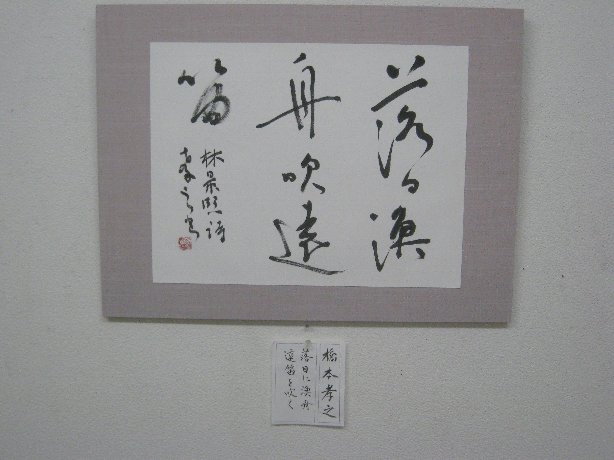 落日漁
舟吹遠
笛
林景熙詩
孝之書
橋本孝之
落日に漁舟
遠笛を吹く